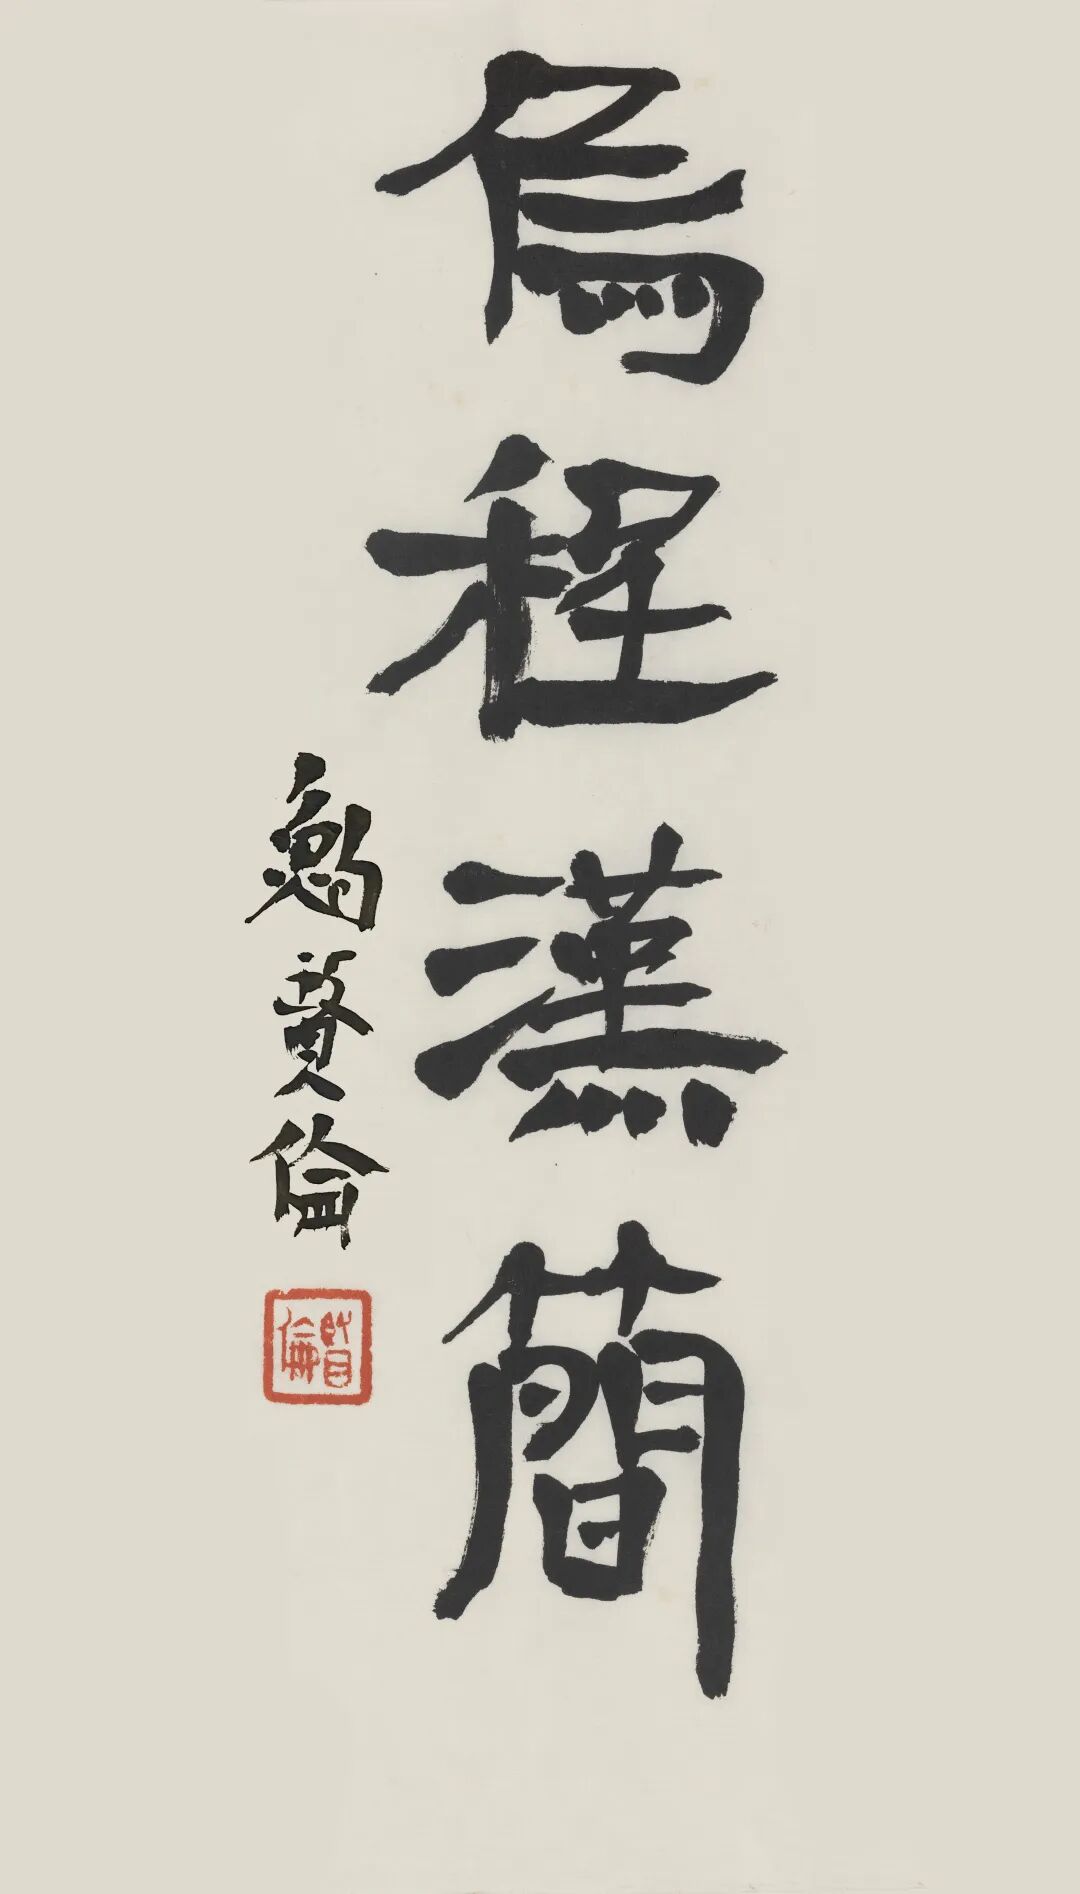 烏程漢簡
鮑賢倫
賢倫